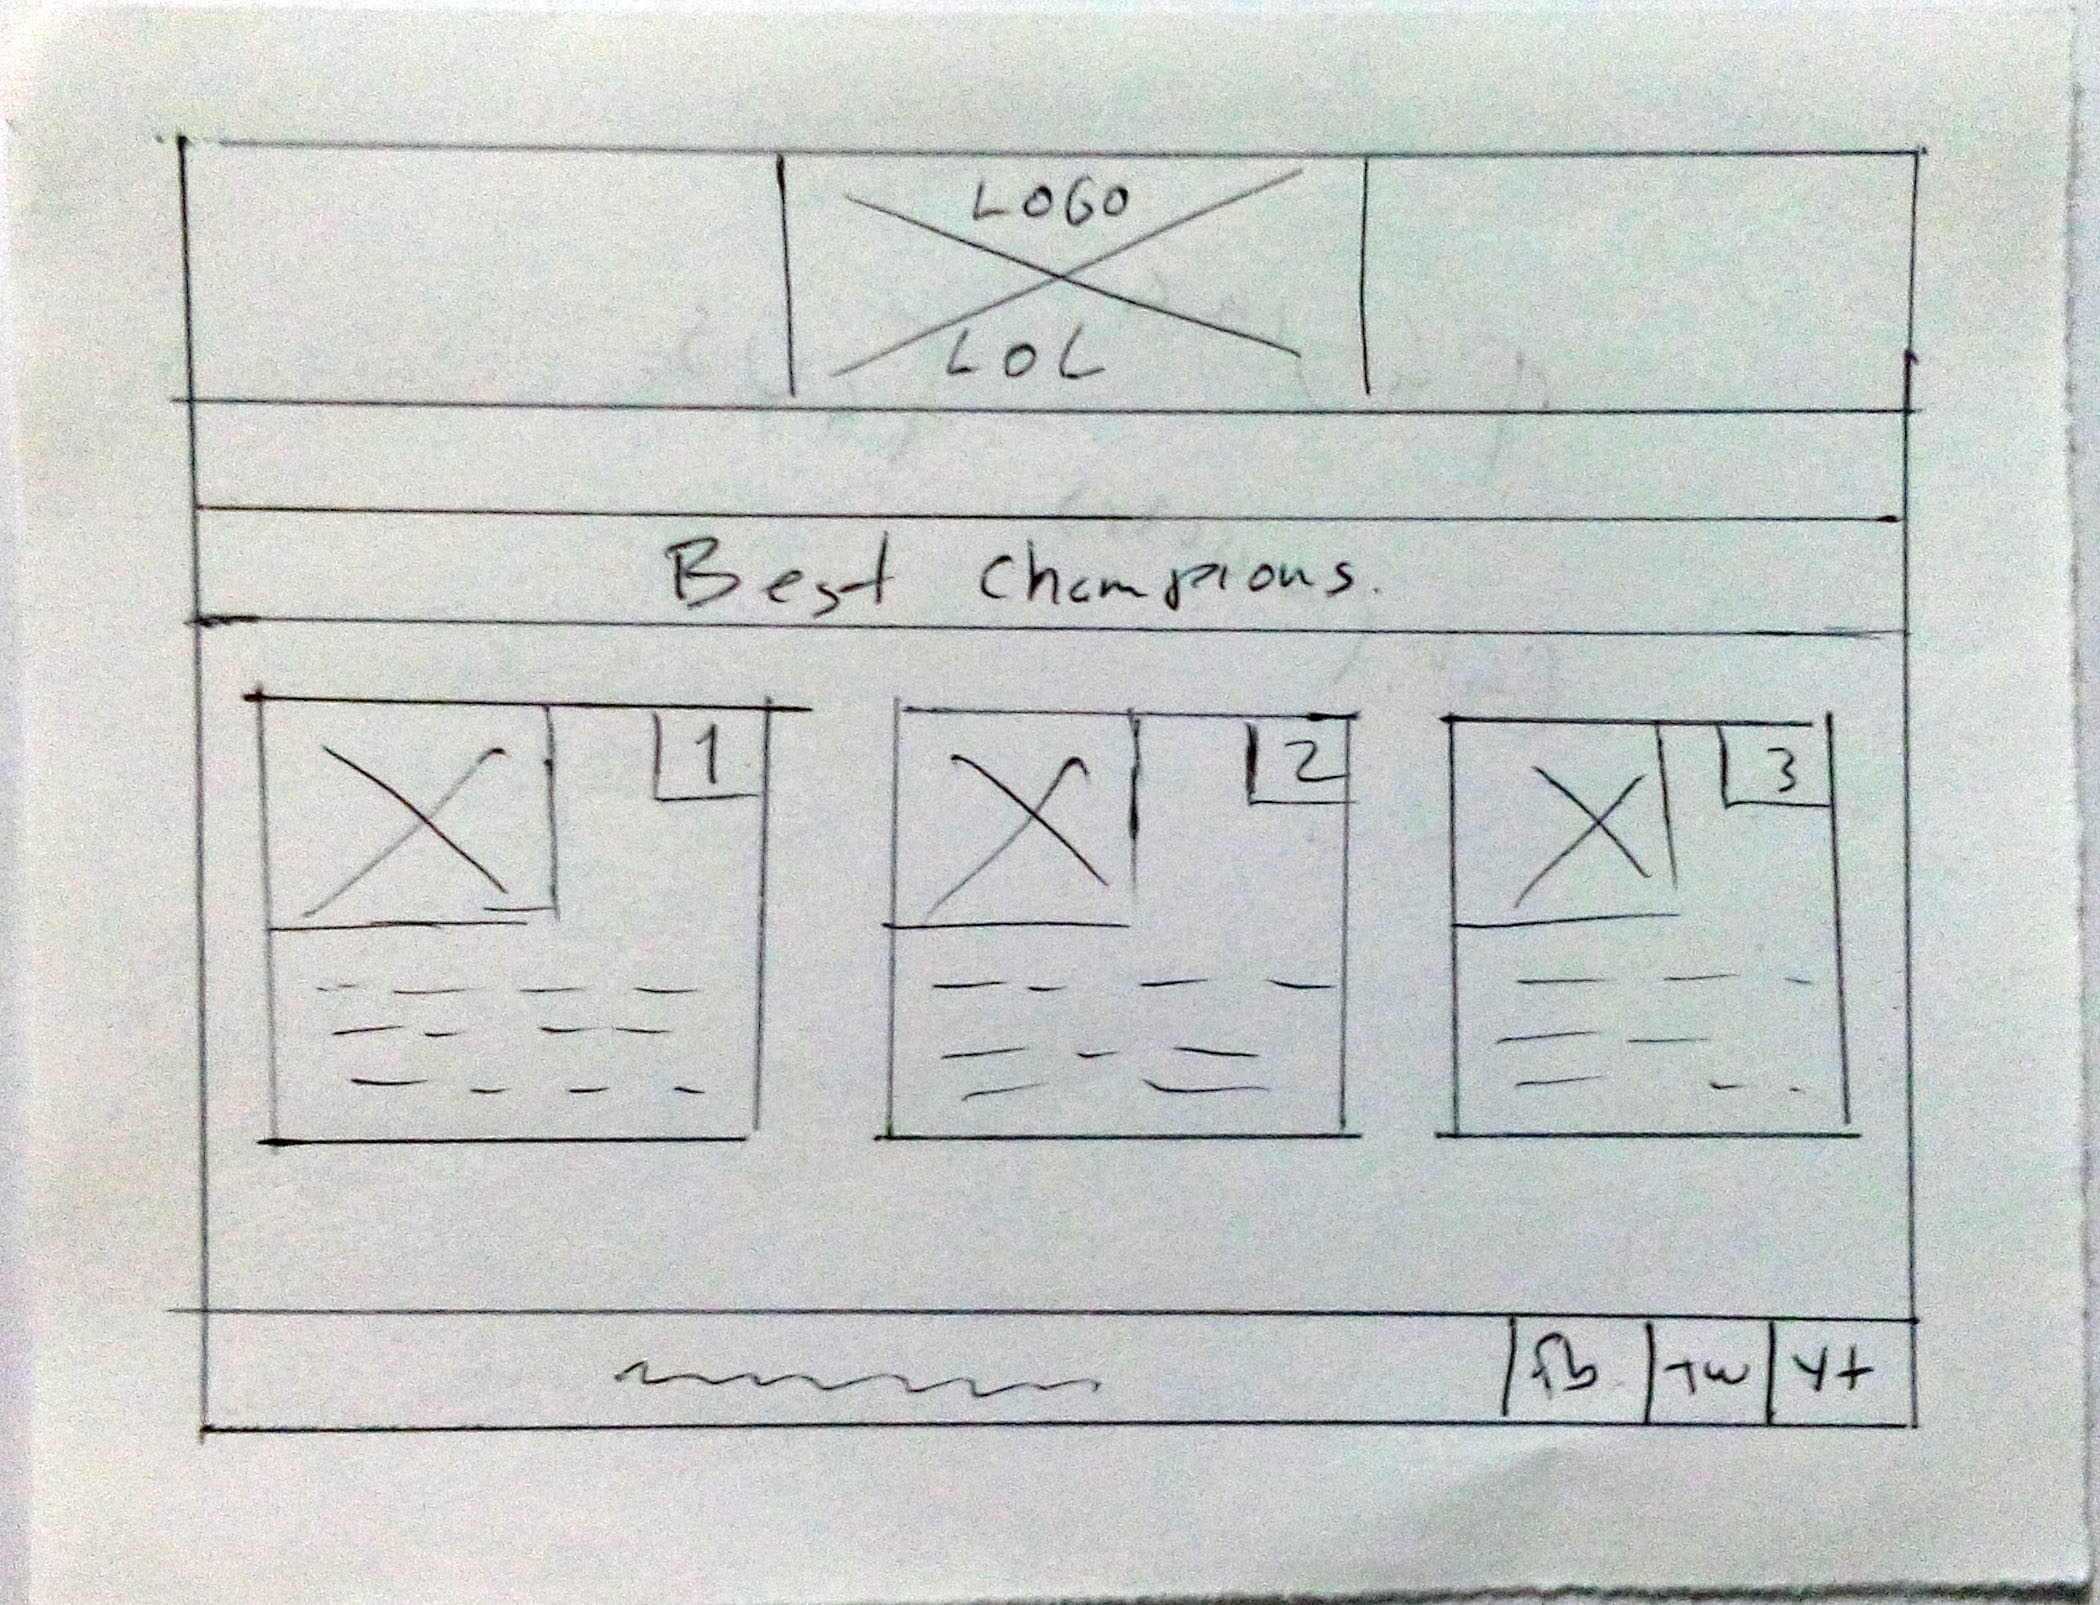 LOGO
LOL
Best Champions.
1
2
3
fb
tw
yt